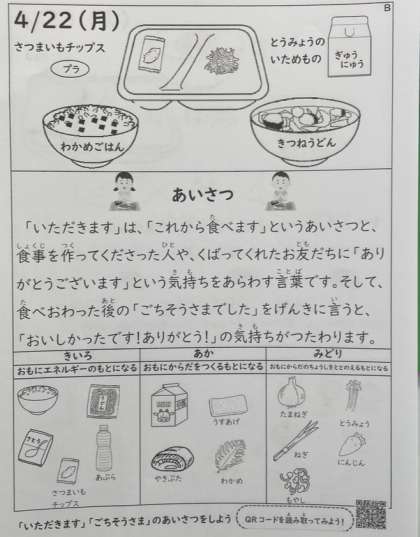 B
4/22(月)
さつまいもチップス
プラ
とうみょうの
いためもの
ぎゅう
にゅう
わかめごはん
きつねうどん
あいさつ
「いただきます」は、「これから食べます」というあいさつと、
食事を作ってくださった人や、くばってくれたお友だちに「あり
がとうございます」という気持ちをあらわす言葉です。そして、
食べおわった後の「ごちそうさまでした」をげんきに言うと、
「おいしかったです!ありがとう!」の気持ちがつたわります。
きいろ
あか
みどり
おもにエネルギーのもとになる
おもにからだをつくるもとになる
おもにからだのちょうしをととのえるもとになる
うどん
さとう
あぶら
さつまいも
チップス
うすあげ
やきぶた
わかめ
たまねぎ
とうみょう
ねぎ
にんじん
もやし
「いただきます」「ごちそうさま」のあいさつをしよう
QRコードを読み取ってみよう!